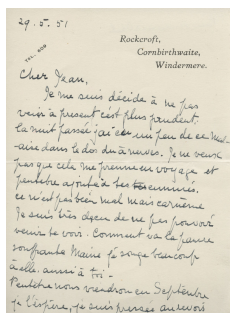 29.5.51
Rockcroft,
Cornbirthwaite,
Windermere.
TEL. 409
Cher Jean,
Je me suis décidé à ne pas
venir à présent c'est plus prudent.
La nuit passée j'ai eu un peu de ce mal-
aise dans le dos du à nerves. Je ne veux
pas que cela me prenne en voyage et
peutetre ajouté à tes ennuies.
ce n'est pas bien mal mais
Je suis très deçu de ne pas pouvoir
venir te voir. Comment va la pauvre
souffrante Maine je songe beaucoup
à elle. aussi à toi -
Peutetre nous viendron en Septembre
je l'éspère, je suis pressée au revoir